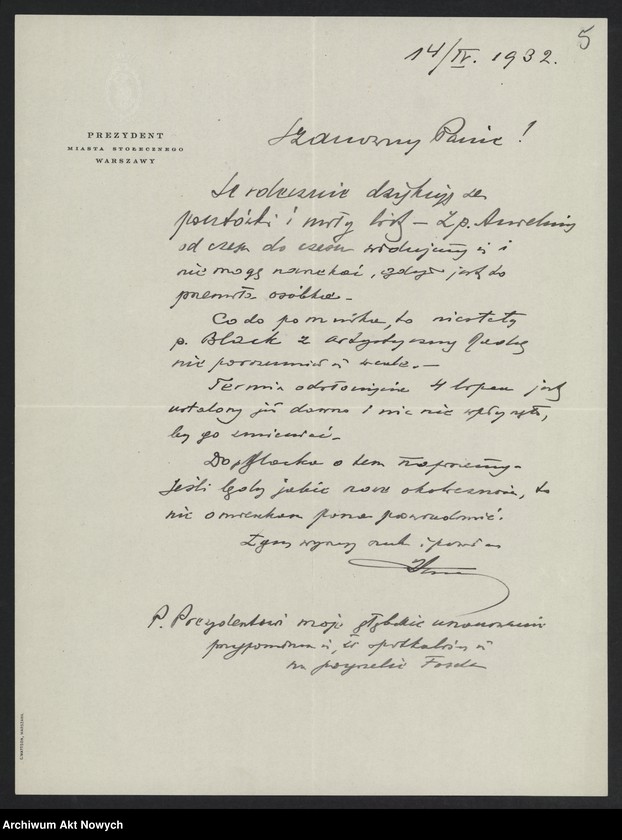 5
14/IV. 1932.
PREZYDENT
MIASTA STOŁECZNEGO
WARSZAWY
Szanowny Panie!
Serdecznie dziękuję za
pocztówki i miły list – Z p.
od czasu do czasu widujemy się i
nie mogę narzekać, gdyż jest to
przemiła osóbka –
Co do pomnika, to niestety
p. Black z artystyczną Radą
nie porozumiał się wcale. –
Termin odsłonięcia 4 lipca jest
ustalony już dawno i nic nie wpłynęło,
by go zmieniać. –
Do p. Blacka o tem napiszemy –
Jeśli będą jakie nowe okoliczności, to
nie omieszkam pana powiadomić.
Łączę wyrazy i
P. Prezydentowi moje głębokie uszanowanie
przypominam się, że spotkaliśmy się
na pogrzebie Focha
Archiwum Akt Nowych